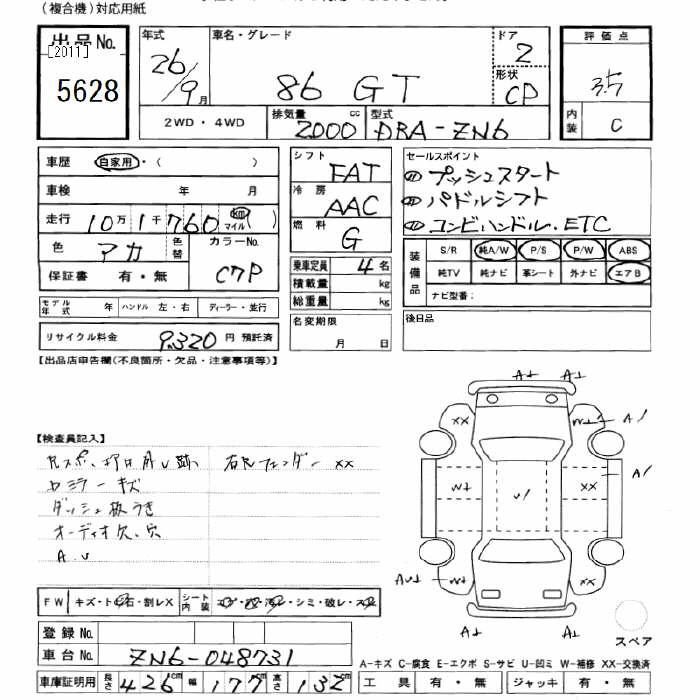 (複合機)対応用紙
出品No. [2011] 5628
年式 26/9月
車名・グレード 86 GT
ドア 2
形状 CP
評価点 3.5
内装 C
2WD・4WD
排気量 2000 cc
型式 DBA-ZN6
車歴 自家用・( )
車検 年 月
走行 10万1千760 km マイル( )
色 アカ 色替
カラーNo. C7P
保証書 有・無
モデル年式 年 ハンドル 左・右 ディーラー・並行
リサイクル料金 9,320 円 預託済
シフト FAT
冷房 AAC
燃料 G
乗車定員 4名
積載量 kg
総重量 kg
名変期限 月 日
セールスポイント
プッシュスタート
パドルシフト
コンビハンドル.ETC
装備品
S/R 純A/W P/S P/W ABS
純TV 純ナビ 革シート 外ナビ エアB
ナビ型番:
後日品
【出品店申告欄(不良箇所・欠品・注意事項等)】
【検査員記入】
右Fフェンダー XX
ミラー キズ
ダッシュ板うき
オーディオ欠.穴
A.U
FW キズ・トビ石・割レX シート内装 シミ・破レ・スレ
登録No.
車台No. ZN6-048731
車庫証明用 長さ 426cm 幅 177cm 高さ 132cm
A⊥ A⊥
XX XX A1
W⊥ U1 XX A1
AU⊥ W⊥ XX
A⊥ A⊥
スペア
A-キズ C-腐食 E-エクボ S-サビ U-凹ミ W-補修 XX-交換済
工具 有・無 ジャッキ 有・無